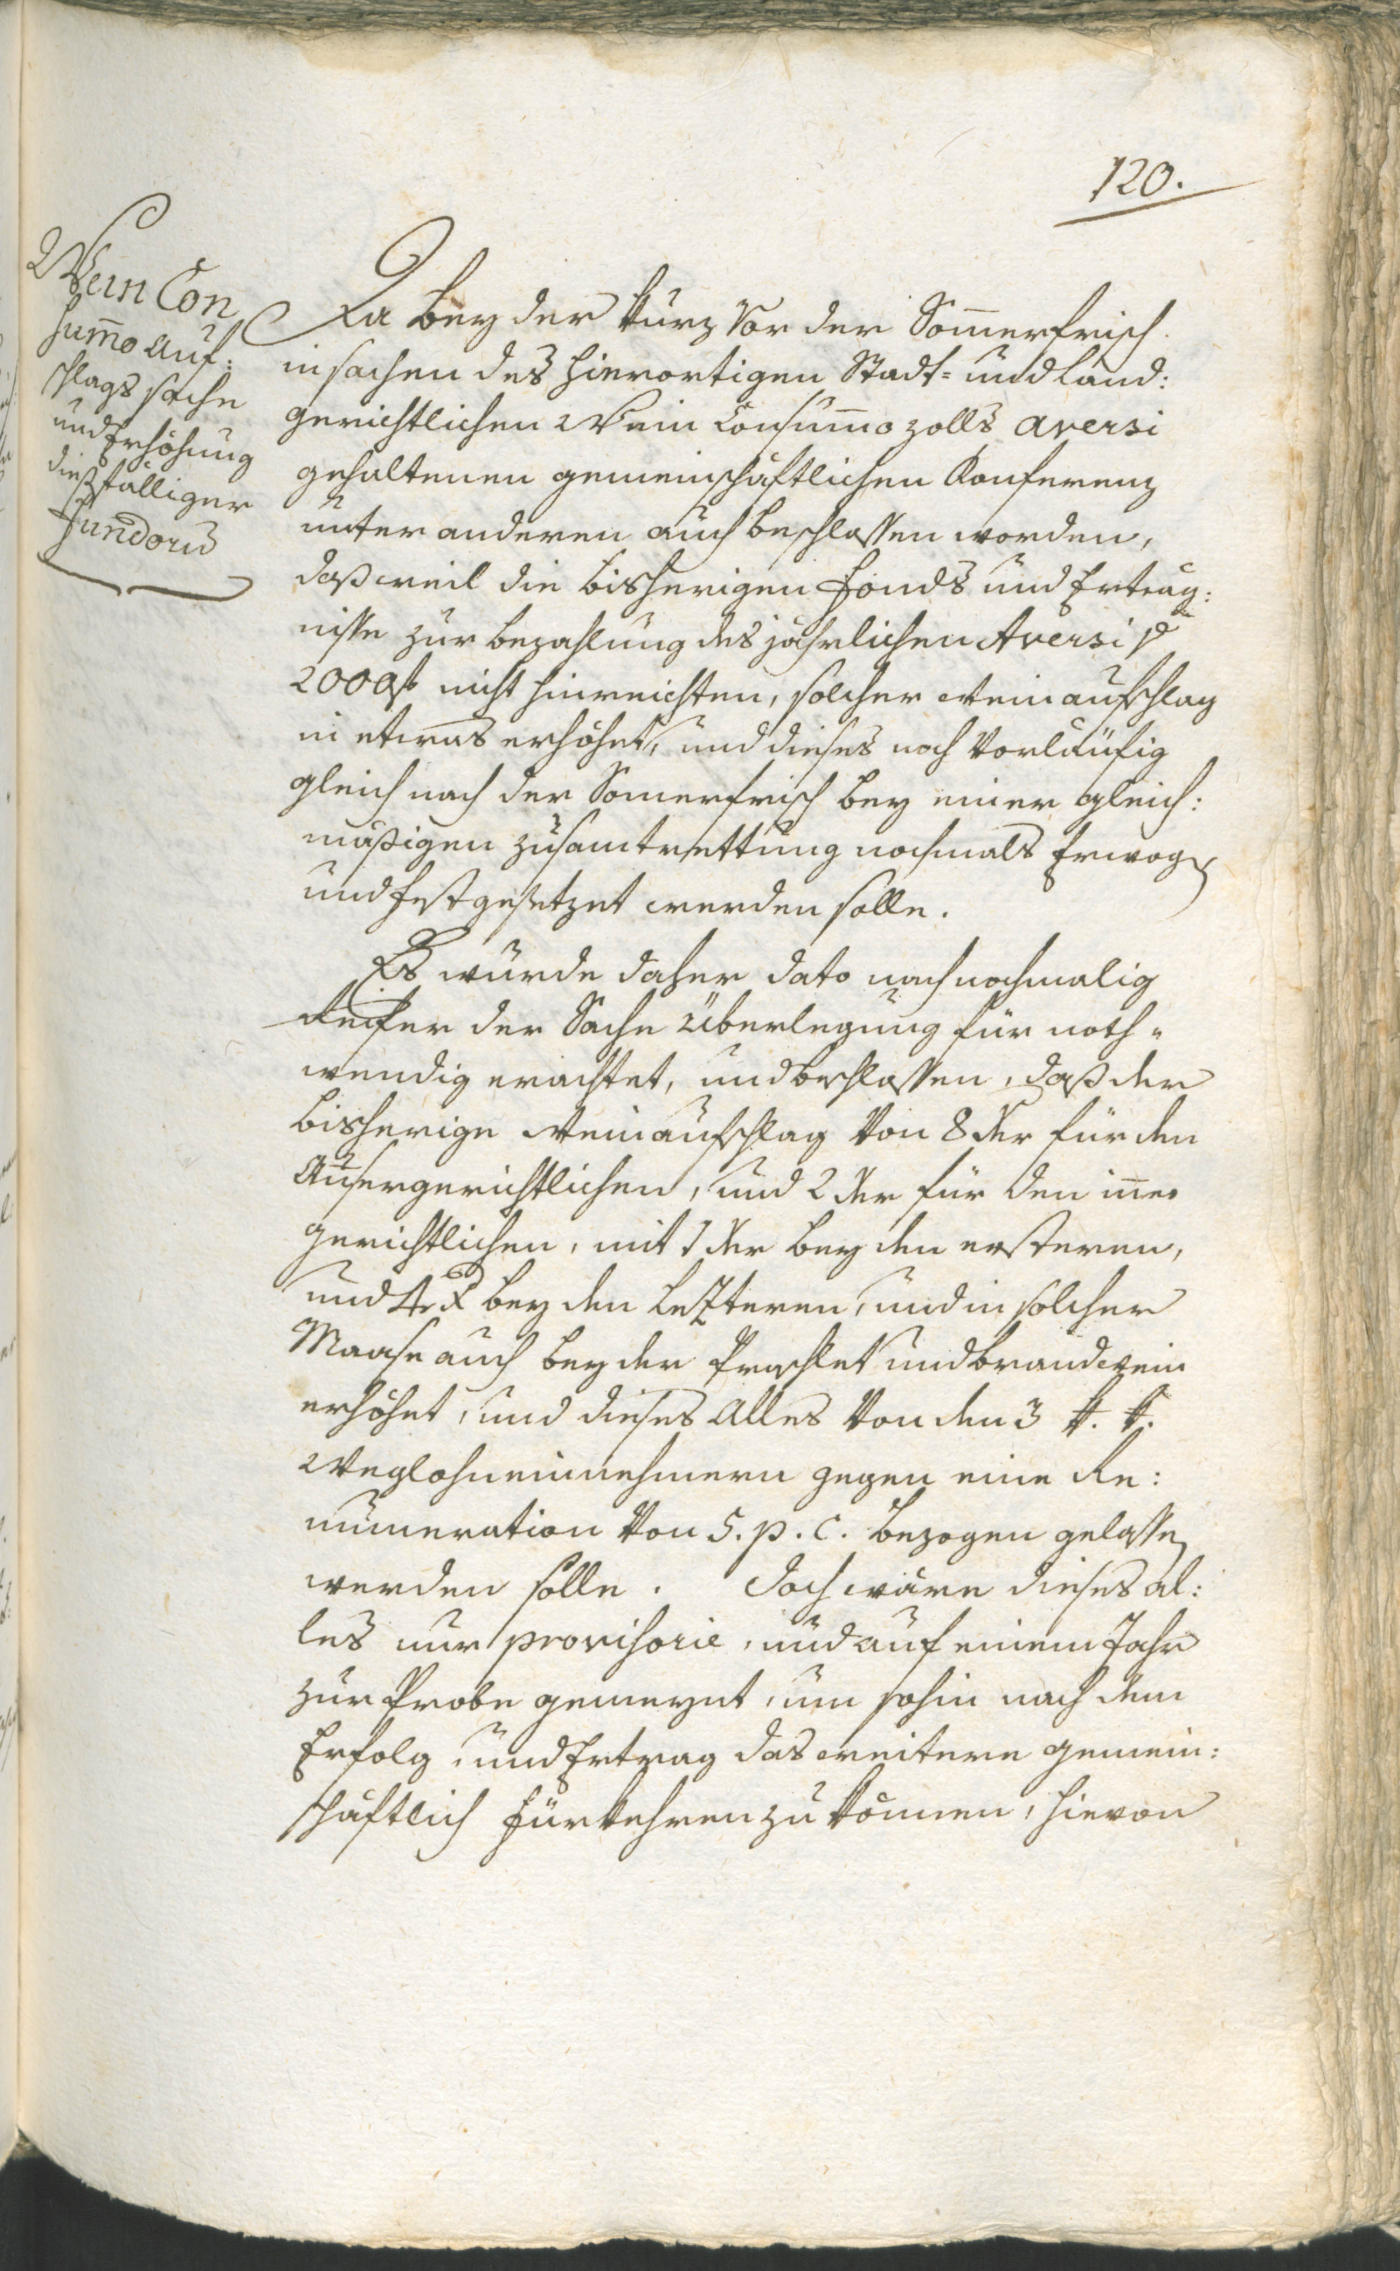 120.
Wein Con
sum̅o auf:
schlags sache
und Erhöhung
dießfälliger
Fundorus
Da bey der kurz vor der Som̅erfrisch
in sachen des hierortigen Stadt= und Land:
gerichtlichen Wein Consum̅o zolls aversi
gehaltenen gemeinschäftlichen Konferenz
unter anderen auch beschlossen worden,
daß weil die bisherigen Fonds und Erträg:
nisse zur bezahlung des jährlichen Aversi
2000f nicht hinreichten, solcher Weinaufschlag
in etwas erhöhet, und dieses noch vorläufig
gleich nach der Somerfrisch bey einer gleich:
mäßigen zusamtrettung nochmals Erwogen
und festgesetzet werden solle.
Es wurde daher dato nach nochmalig
Reifer der Sache Überlegung für noth=
wendig erachtet, und beschlossen, daß der
bisherige Weinaufschlag von 8 kr für den
Aussergerichtlichen, und 2 kr für den inner
gerichtlichen, mit 1 kr bey den ersteren,
und bey den lezteren, und in solcher
Maase auch bey der Praschlet und brandwein
erhöhet, und dieses Alles von den 3 tt. tt.
Weglohneinnehmern gegen eine Re:
muneration von 5. p. c. bezogen gelassen
werden solle. Doch wäre dieses al:
les nur provisorie, und auf einem Jahr
zur Probe gemeynt, um sohin nach dem
Erfolg, und Ertrag das weitere gemein:
schäftlich fürkehren zu können, hievon